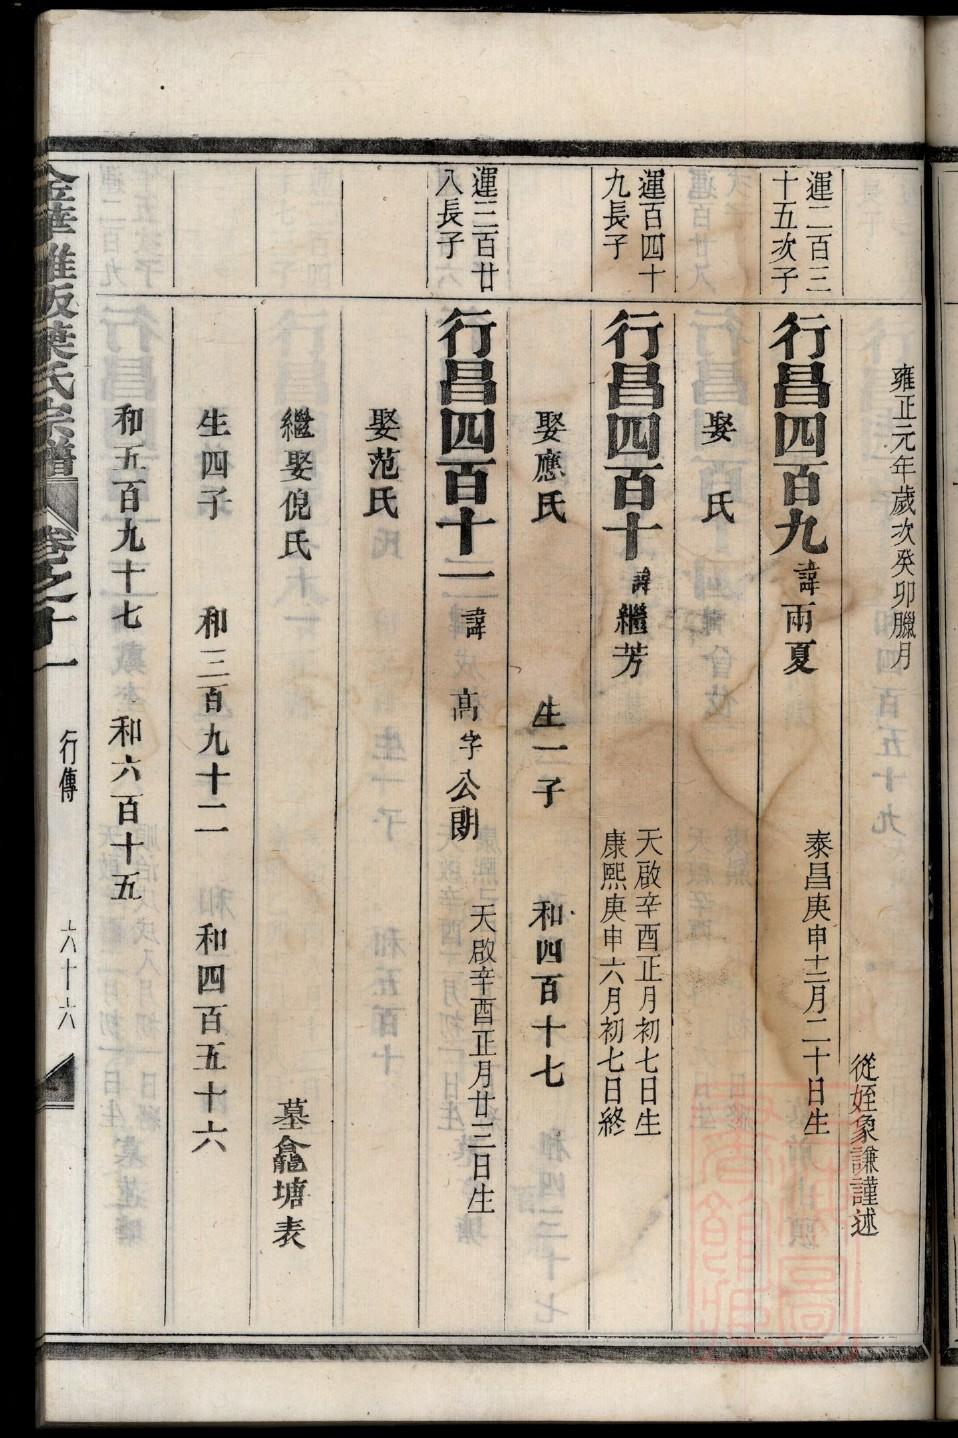 雍正元年歲次癸卯臘月
從姪象謙謹述
運二百三
十五次子
行昌四百九 諱雨夏 泰昌庚申十二月二十日生
娶 氏
運百四十
九長子
行昌四百十 諱繼芳 天啟辛酉正月初七日生
康熙庚申六月初七日終
娶應氏 生一子 和四百十七
運三百廿
八長子
行昌四百十一 諱 高字公朗 天啟辛酉正月廿三日生
娶范氏
繼娶倪氏 墓龕塘表
生四子 和三百九十二 和四百五十六
和五百九十七 和六百十五
葉氏宗譜 卷之十一 行傳 六十六